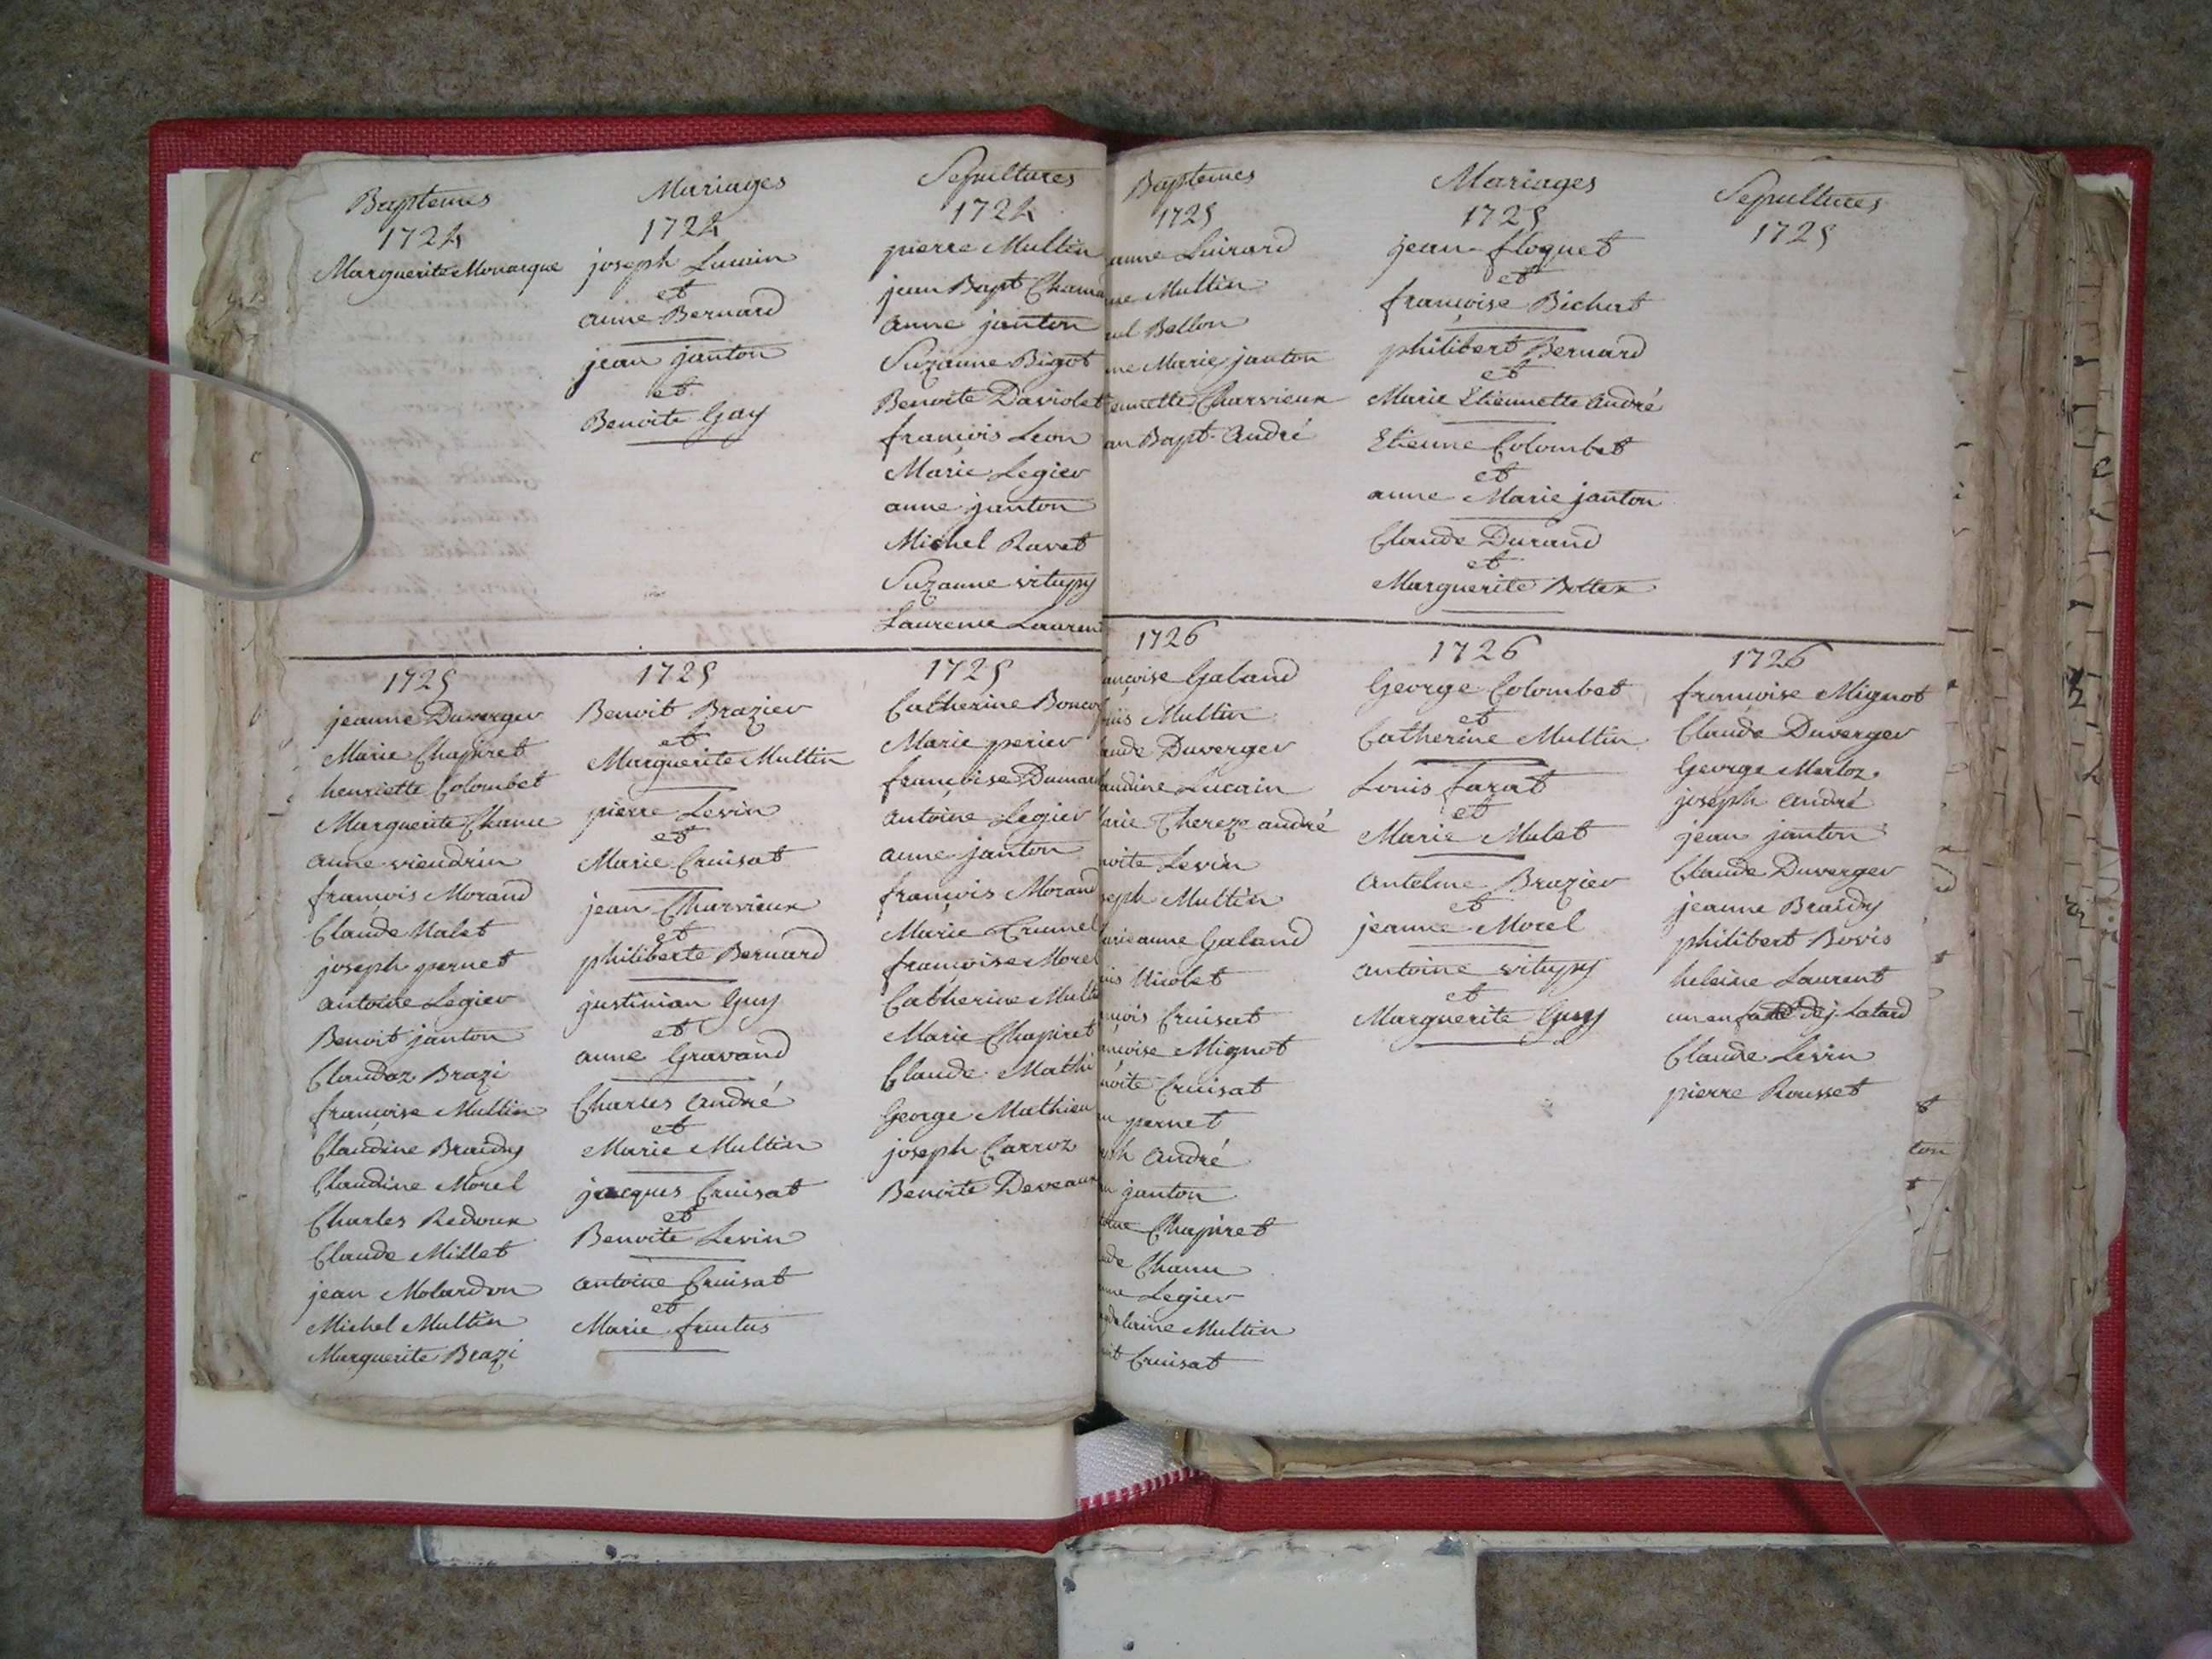 Baptemes
1724
Marguerite Monarque
Mariages
1724
joseph Lucain
et
anne Bernard
jean janton
et
Benoite Gay
Sepultures
1724
pierre Multin
jean Bapt Chana
anne janton
Suzanne Bigot
Benoite Daviolet
francois Leon
Marie Legier
anne janton
Michel Ravet
Suzanne vitupy
Laurence Lauren
1725
jeanne Duverger
Marie Chapiret
henriette Colombet
Marguerite Chanu
anne viendrin
francois Morand
Claude Malet
joseph pernet
antoine Legier
Benoit janton
Claudaz Brazi
françoise Multin
Claudine Braidy
Claudine Morel
Charles Redoux
Claude Millet
jean Molardon
Michel Multin
Marguerite Brazi
1725
Benoit Brazier
et
Marguerite Multin
pierre Levin
et
Marie Cruisat
jean Charvieux
et
philiberte Bernard
justinian Guy
et
anne Gravand
Charles andré
et
Marie Multin
jacques Cruisat
et
Benoite Levin
antoine Cruisat
et
Marie frutus
1725
Catherine
Marie perier
françoise Dumar
antoine Legier
anne janton
françois Morand
Marie Crunel
francoise Morel
Catherine Mult
Marie Chapiret
Claude Mathi
George Mathieu
joseph Carroz
Benoite Deveaux
Baptemes
1725
anne Luirard
ne Multin
ul Bellon
ne Marie janton
ennette Charvieux
an Bapt. andré
Mariages
1725
jean floquet
et
françoise Bichat
philibert Bernard
et
Marie Etiennette andré
Etienne Colombet
et
anne Marie janton
Claude Durand
et
Marguerite Bottex
Sepultures
1725
1726
ançoise Galand
Multin
aude Duverger
audine Lucain
arie Thereze andré
noite Levin
seph Multin
arie anne Galand
uis Nicolet
nçois Cruisat
ançoise Mignot
noite Cruisat
n pernet
ph andré
n janton
Chapiret
de Chanu
ne Legier
gdelaine Multin
oit Cruisat
1726
George Colombet
et
Catherine Multin
Louis farat
et
Marie Malet
antelme Brazier
et
jeanne Morel
antoine vitupy
et
Marguerite Guy
1726
françoise Mignot
Claude Duverger
George Marloz
joseph andré
jean janton
Claude Duverger
jeanne Braidy
philibert Bovis
heleine Laurent
un enfant de j. Latard
Claude Levin
pierre Rousset
ton